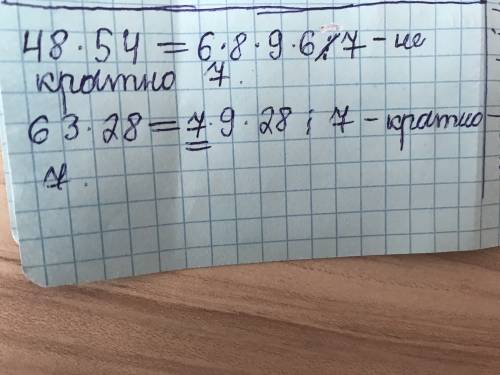 48 · 54 = 6 · 8 · 9 · 6 ⋮̸ 7 - не
кратно 7.
63 · 28 = 7 · 9 · 28 ⋮ 7 - кратно
7.